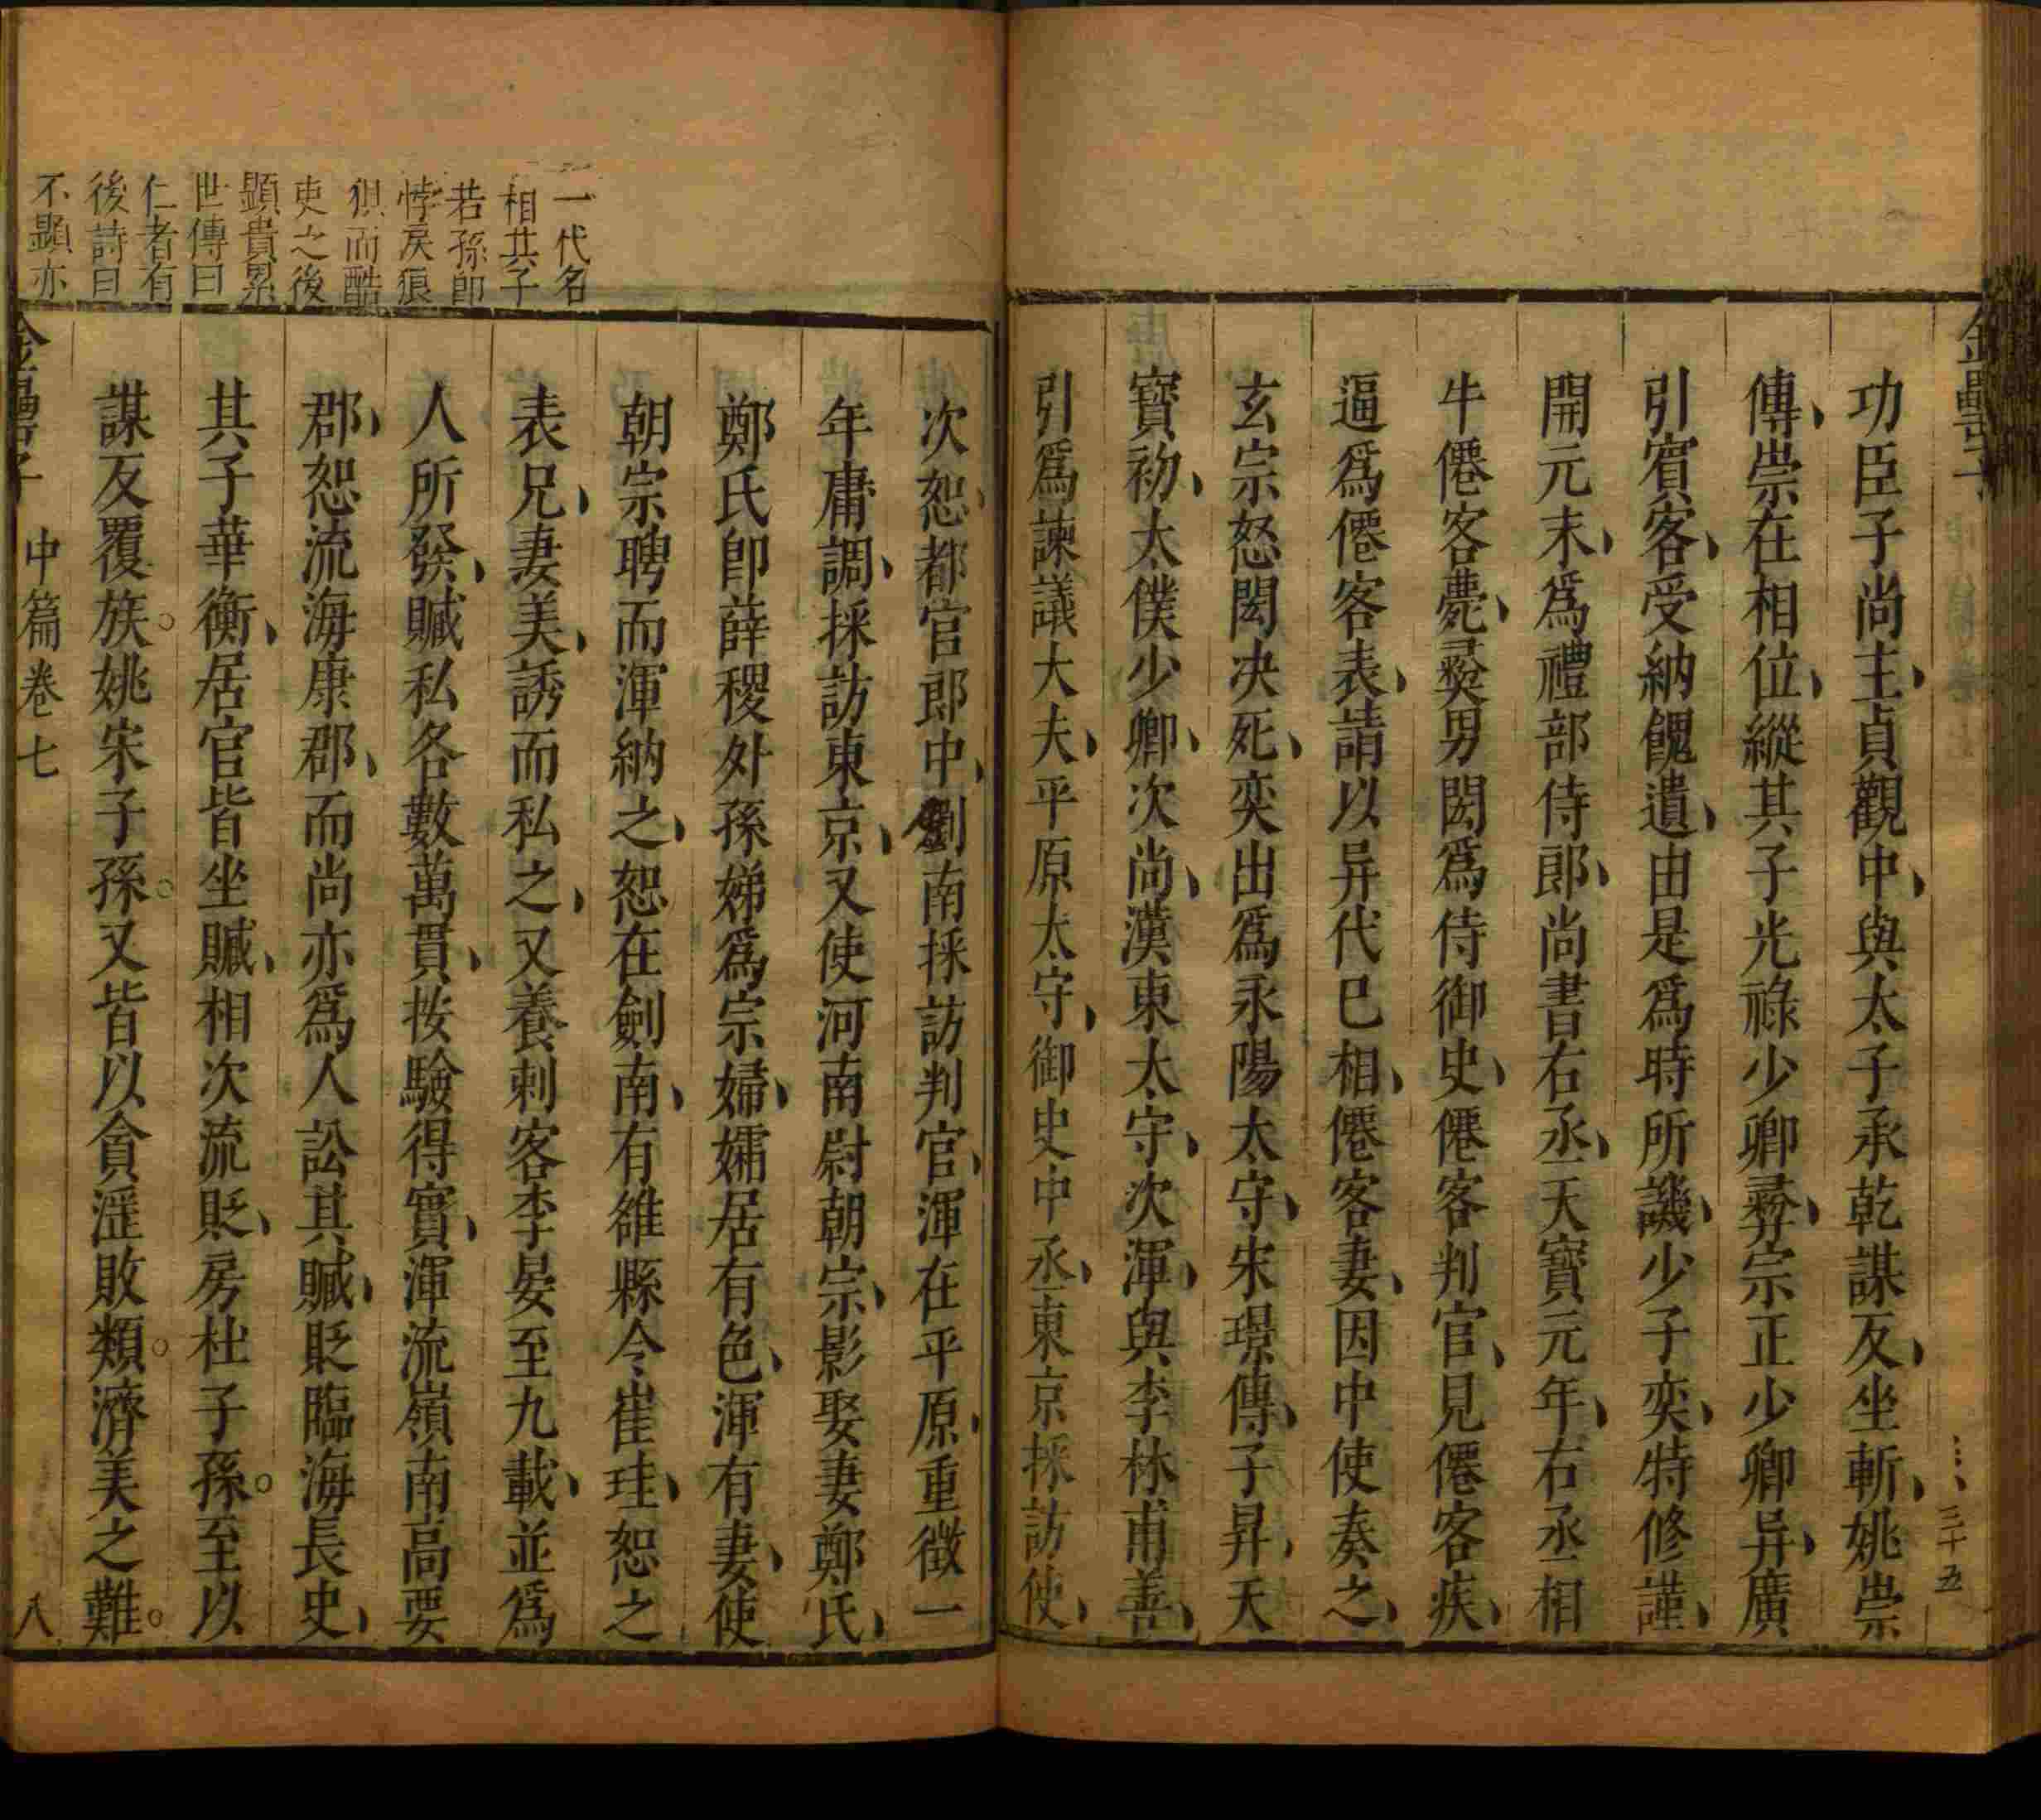 金罍子
三十五
功臣子尚主貞觀中與太子承乾謀反坐斬姚崇
傳崇在相位縱其子光祿少卿彛宗正少卿异廣
引賓客受納餽遺由是爲時所譏少子奕特修謹
開元末爲禮部侍郎尚書右丞天寶元年右丞相
牛僊客薨彛男閎爲侍御史僊客判官見僊客疾
逼爲僊客表請以异代巳相僊客妻因中使奏之
玄宗怒閎决死奕出爲永陽太守宋璟傳子昇天
寶初太僕少卿次尚漢東太守次渾與李林甫善
引爲諫議大夫平原太守御史中丞東京採訪使
一代名
相其子
若孫卽
悖戾狼
狽而酷
吏之後
顯貴累
世傳曰
仁者有
後詩曰
不顯亦
次恕都官郎中劍南採訪判官渾在平原重徵一
年庸調採訪東京又使河南尉朝宗影娶妻鄭氏
鄭氏卽薛稷外孫娣爲宗婦孀居有色渾有妻使
朝宗聘而渾納之恕在劍南有雒縣令崔珪恕之
表兄妻美誘而私之又養剌客李晏至九載並爲
人所發贓私各數萬貫按驗得實渾流嶺南高要
郡恕流海康郡而尚亦爲人訟其贓貶臨海長史
其子華衡居官皆坐贓相次流貶房杜子孫至以
謀反覆族姚宋子孫又皆以貪淫敗類濟美之難
金罍子 中篇卷七 八